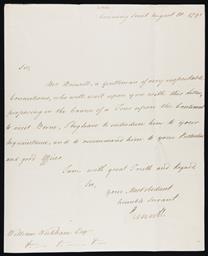 Downing Street August 10. 179
Sir,
Mr. Boswell, a Gentleman of very respectable
Connections, who will wait upon you with this letter,
proposing in the course of a Tour upon the Continent
to visit Berne, I beg leave to introduce him to your
Acquaintance, and to recommend him to your Protection
and good Offices.
I am with great Truth and Regard,
Sir,
Your Most obedient
humble Servant
Grenville
William Wickham Esqr.